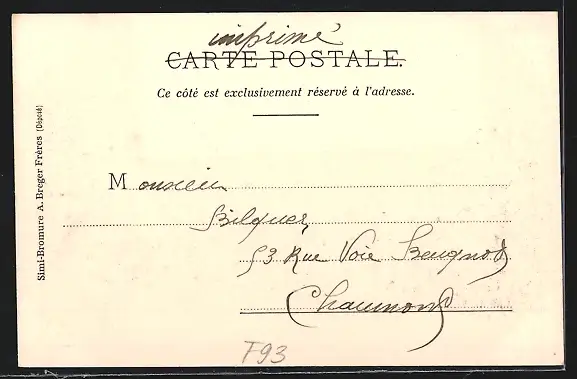 imprimé
CARTE POSTALE.
Ce côté est exclusivement réservé à l'adresse.
Monsieur
Bilquez
53 Rue Voie Beugnot
Chaumont
F93
Simi-Bromure A. Breger Frères (Déposé)